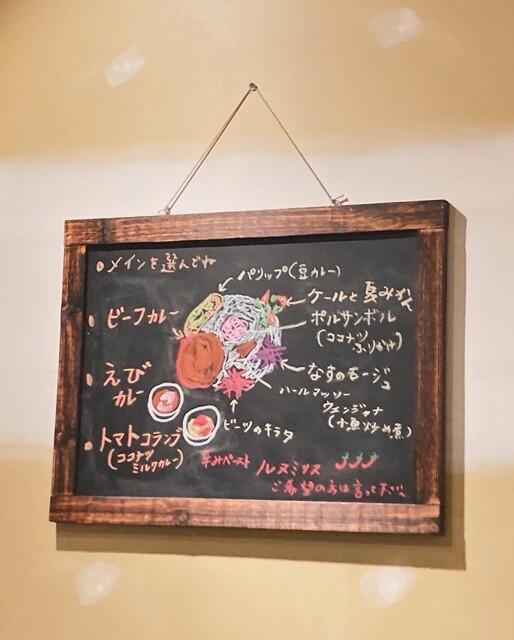 メインを選んでね
ビーフカレー
えび
カレー
トマトコランブ
(ココナツ
ミルクカレー)
パリップ(豆カレー)
ケールと夏みかん
ポルサンボル
(ココナツ
ふりかけ)
なすのモージュ
ハールマッソー
ウェンジャナ
(小魚炒め煮)
ビーツのキラタ
辛みペースト ルヌミリス
ご希望の方は言って下さい